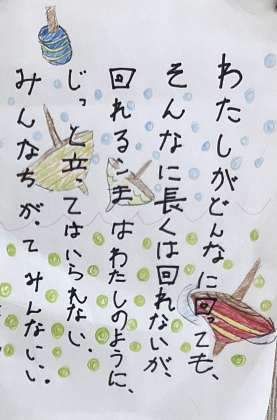 わたしがどんなに回っても、
そんなに長くは回れないが、
回れるこまはわたしのように、
じっと立ってはいられない、
みんなちがってみんないい。